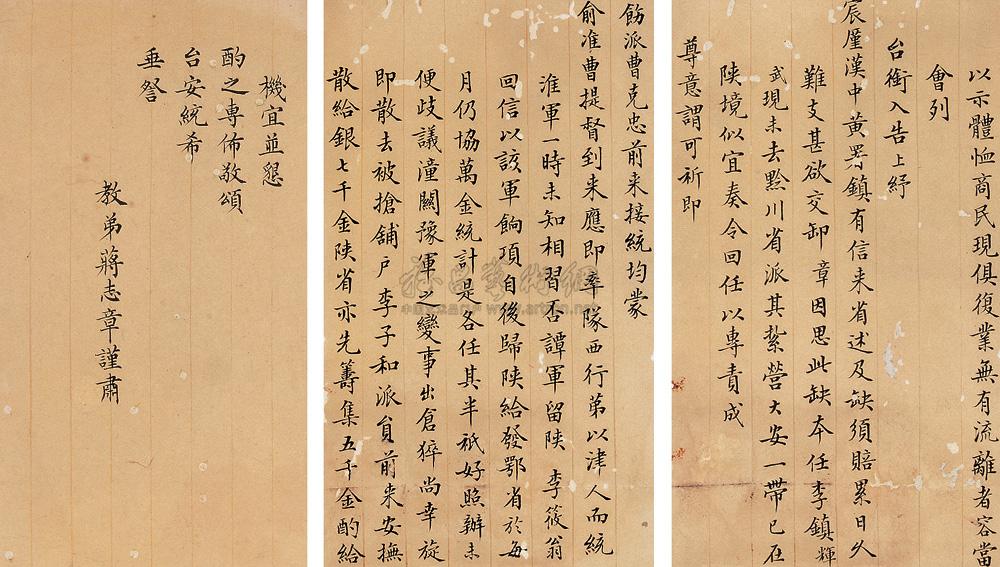 以示體恤商民現俱復業無有流離者容當
會列
台銜入告上紓
宸廑漢中黄署鎮有信来省述及缺須賠累日久
難支甚欲交卸 章因思此缺本任李鎮輝
武現未去黔川省派其紮營大安一帶已在
陝境似宜奏令回任以專責成
尊意謂可祈即
飭派曹克忠前来接統均蒙
俞准曹提督到来應即率隊西行弟以津人而統
淮軍一時未知相習否譚軍留陝 李筱翁
回信以該軍餉項自後歸陝給發鄂省於每
月仍協萬金統計是各任其半衹好照辦未
便歧議潼關豫軍之變事出倉猝尚幸旋
即散去被搶舖户李子和派員前来安撫
散給銀七千金陝省亦先籌集五千金酌給
機宜並懇
酌之專佈敬頌
台安統希
垂詧
教弟蔣志章謹肅
雅昌藝術網
www.artron.net